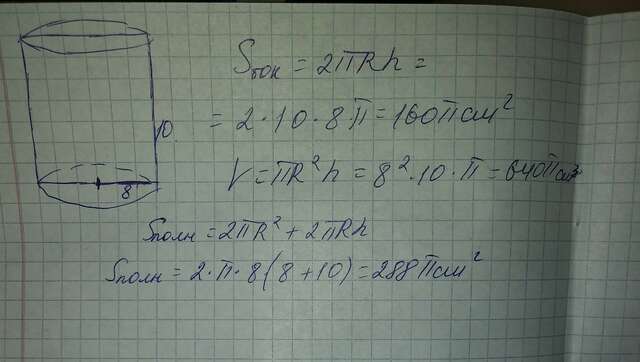 Sбок = 2πRh =
= 2·10·8π = 160π см²
10
V = πR²h = 8²·10·π = 640π см³
8
Sполн = 2πR² + 2πRh
Sполн = 2·π·8(8+10) = 288π см²